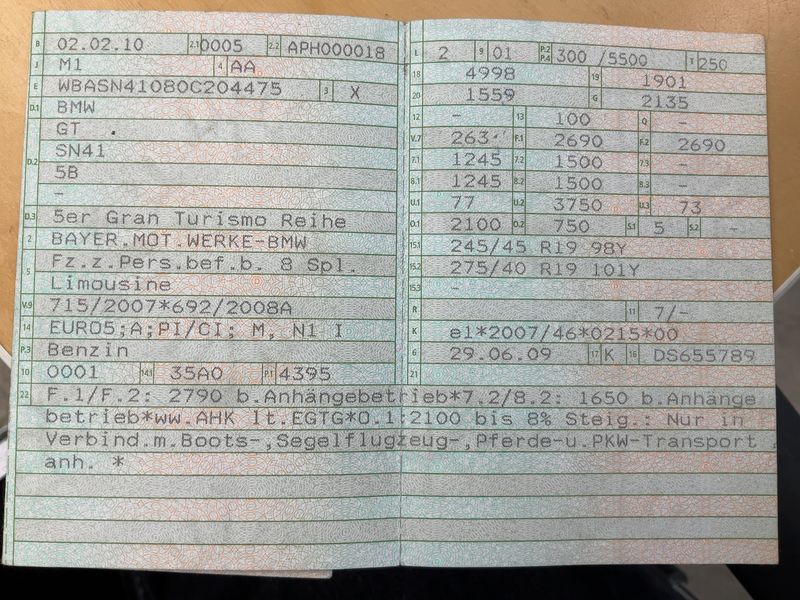 B 02.02.10 2.1 0005 2.2 APH000018
J M1 4 AA
E WBASN41080C204475 3 X
D.1 BMW
D.2 GT .
SN41
5B
-
D.3 5er Gran Turismo Reihe
2 BAYER.MOT.WERKE-BMW
5 Fz.z.Pers.bef.b. 8 Spl.
Limousine
V.9 715/2007*692/2008A
14 EURO5;A;PI/CI; M, N1 I
P.3 Benzin
10 0001 14.1 35A0 P.1 4395
L 2 9 01 P.2 P.4 300 /5500 T 250
18 4998 19 1901
20 1559 G 2135
12 - 13 100 Q -
V.7 263 F.1 2690 F.2 2690
7.1 1245 7.2 1500 7.3 -
8.1 1245 8.2 1500 8.3 -
U.1 77 U.2 3750 U.3 73
O.1 2100 O.2 750 S.1 5 S.2 -
15.1 245/45 R19 98Y
15.2 275/40 R19 101Y
15.3 -
R 11 7/-
K e1*2007/46*0215*00
6 29.06.09 17 K 16 DS655789
21
22 F.1/F.2: 2790 b.Anhängebetrieb*7.2/8.2: 1650 b.Anhänge
betrieb*ww.AHK lt.EGTG*O.1:2100 bis 8% Steig.: Nur in
Verbind.m.Boots-,Segelflugzeug-,Pferde-u.PKW-Transport
anh. *